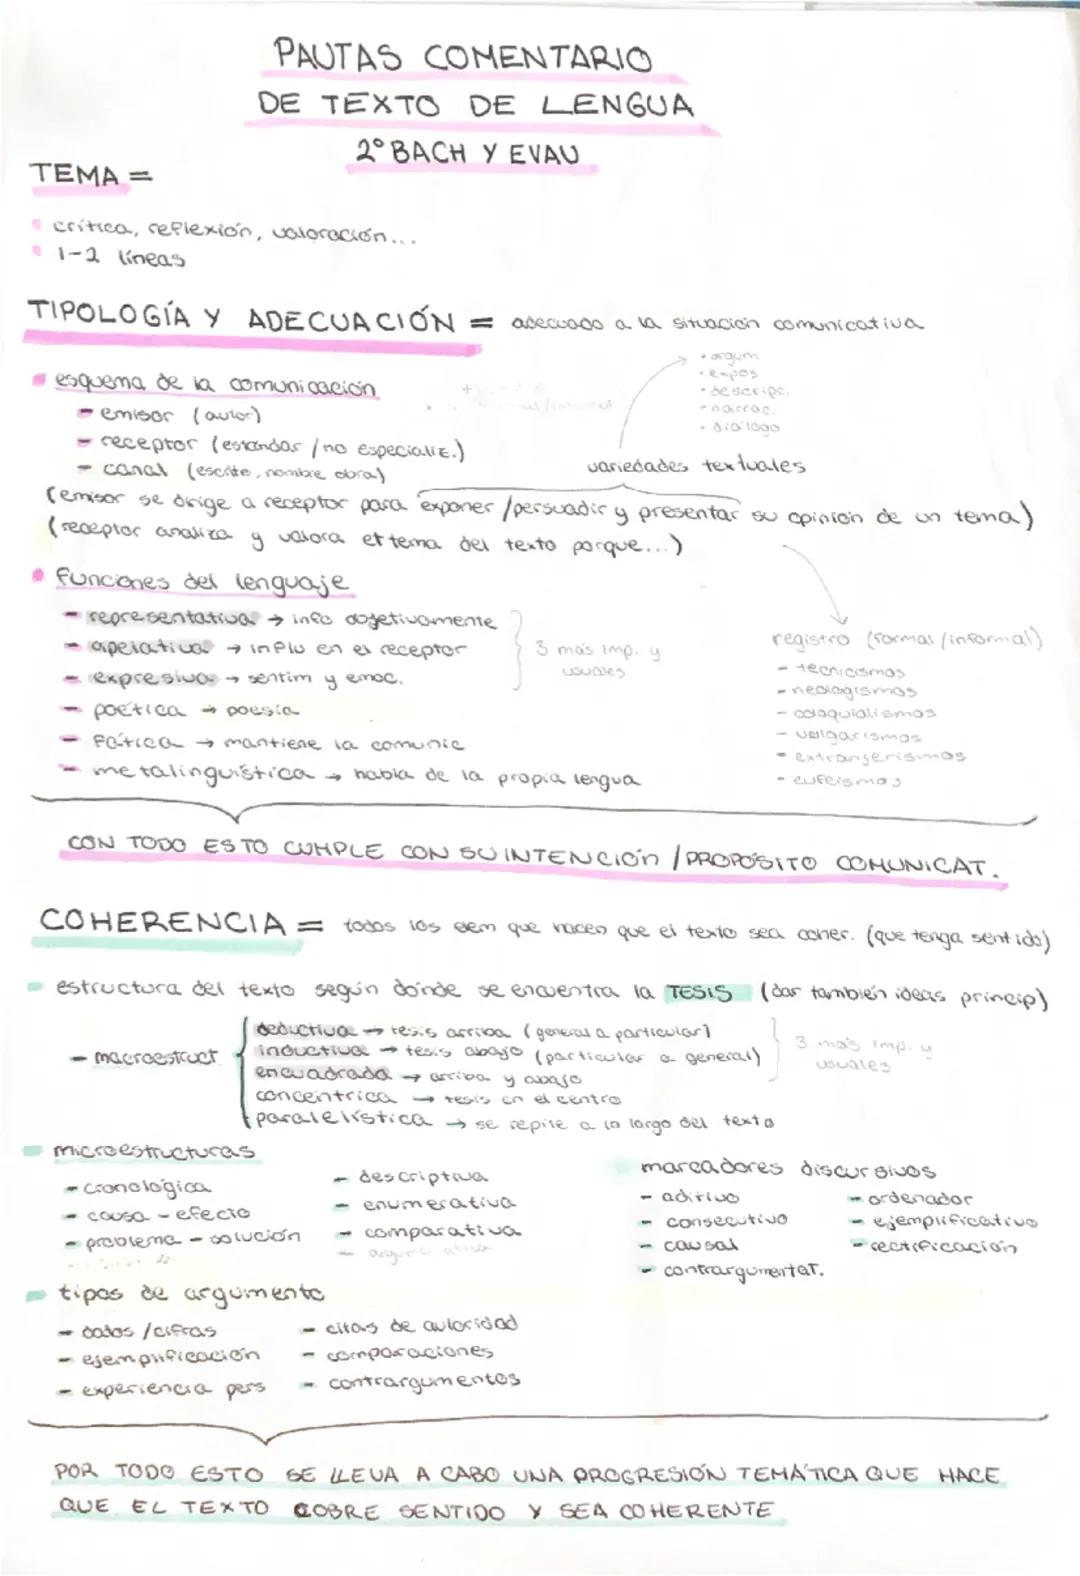 PAUTAS COMENTARIO
DE TEXTO DE LENGUA
2º BACH Y EVAU
TEMA =
crítica, reflexión, valoración...
1-2 líneas
TIPOLOGÍA Y ADECUACIÓN = adecuado a la situación comunicativa
• argum
• expos
• descripc.
• narrac.
• diálogo
variedades textuales
esquema de la comunicación
- emisor (autor)
- receptor (estándar / no especializ.)
- canal (escrito, nombre obra)
(emisor se dirige a receptor para exponer / persuadir y presentar su opinión de un tema)
(receptor analiza y valora el tema del texto porque...)
funciones del lenguaje
- representativa → info objetivamente
- apelativa → influ en el receptor
- expresiva → sentim y emoc.
3 más imp. y
usuales
- poética → poesía
- fática → mantiene la comunic
- metalinguística → habla de la propia lengua
registro (formal/informal)
- tecnicismos
- neologismos
- coloquialismos
- vulgarismos
- extranjerismos
- eufeismos
CON TODO ESTO CUMPLE CON SU INTENCIÓn / PROPÓSITO COMUNICAT.
COHERENCIA = todos los elem que hacen que el texto sea coher. (que tenga sentido)
estructura del texto según dónde se encuentra la TESIS (dar también ideas princip)
- macroestruct
deductiva → tesis arriba (general a particular)
inductiva → tesis abajo (particular a general)
encuadrada → arriba y abajo
3 más imp. y
usuales
concéntrica → tesis en el centro
paralelística → se repite a lo largo del texto
microestructuras
- cronológica
- causa - efecto
- problema - solución
- descriptiva
- enumerativa
- comparativa
marcadores discursivos
- aditivo
- consecutivo
- causal
- contrargumentat.
- ordenador
- ejemplificativo
- rectificación
tipos de argumento
- datos / cifras
- ejemplificación
- experiencia pers
- citas de autoridad
- comparaciones
- contrargumentos
POR TODO ESTO SE LLEVA A CABO UNA PROGRESIÓN TEMÁTICA QUE HACE
QUE EL TEXTO COBRE SENTIDO Y SEA COHERENTE